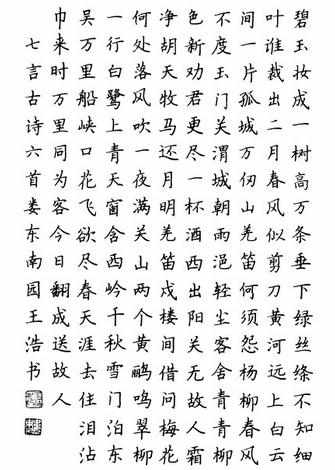 碧玉妆成一树高万条垂下绿丝绦不知细
叶谁裁出二月春风似剪刀黄河远上白云
间一片孤城万仞山羌笛何须怨杨柳春风
不度玉门关渭城朝雨浥轻尘客舍青青柳
色新劝君更尽一杯酒西出阳关无故人霜
净胡天牧马还月明羌笛戍楼间借问梅花
何处落风吹一夜满关山两个黄鹂鸣翠柳
一行白鹭上青天窗含西岭千秋雪门泊东
吴万里船峡口花飞欲尽春天涯去住泪沾
巾来时万里同为客今日翻成送故人
七言古诗六首娄东南园王浩书